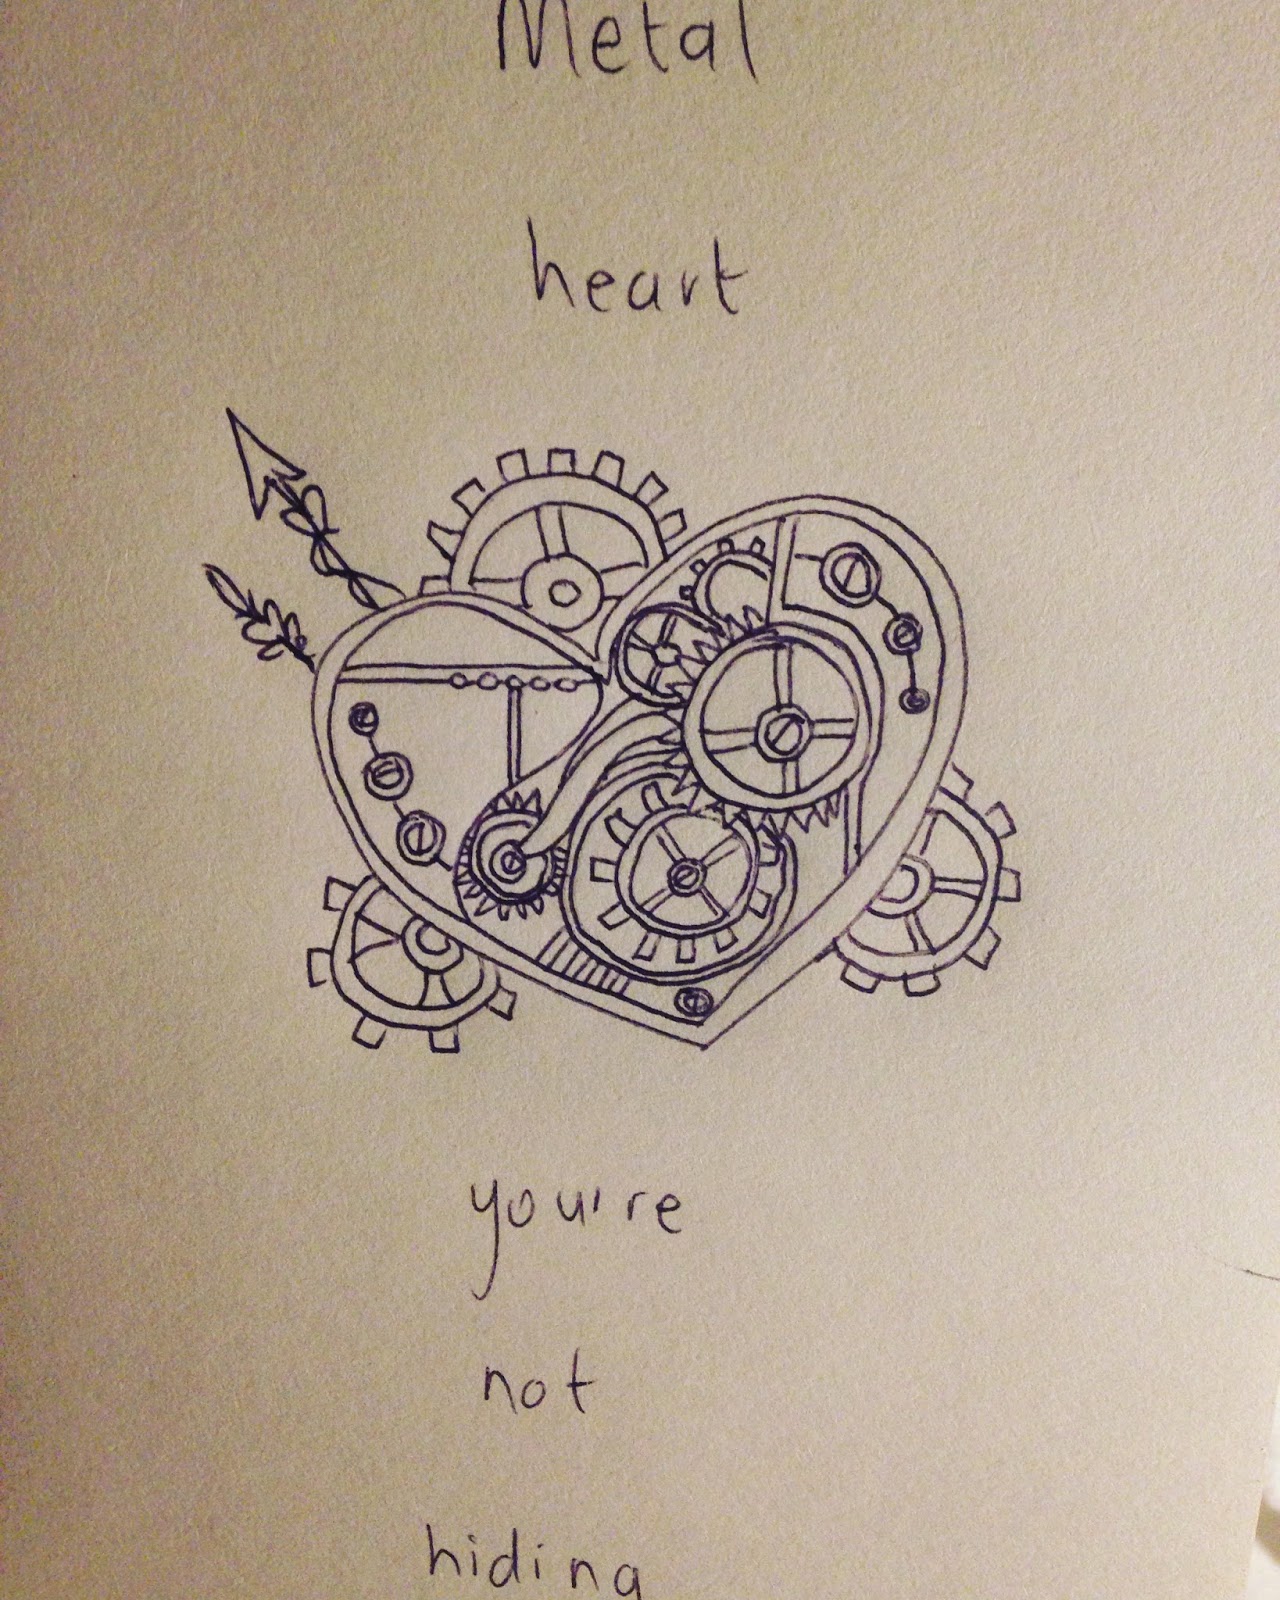 Metal
heart
you're
not
hiding